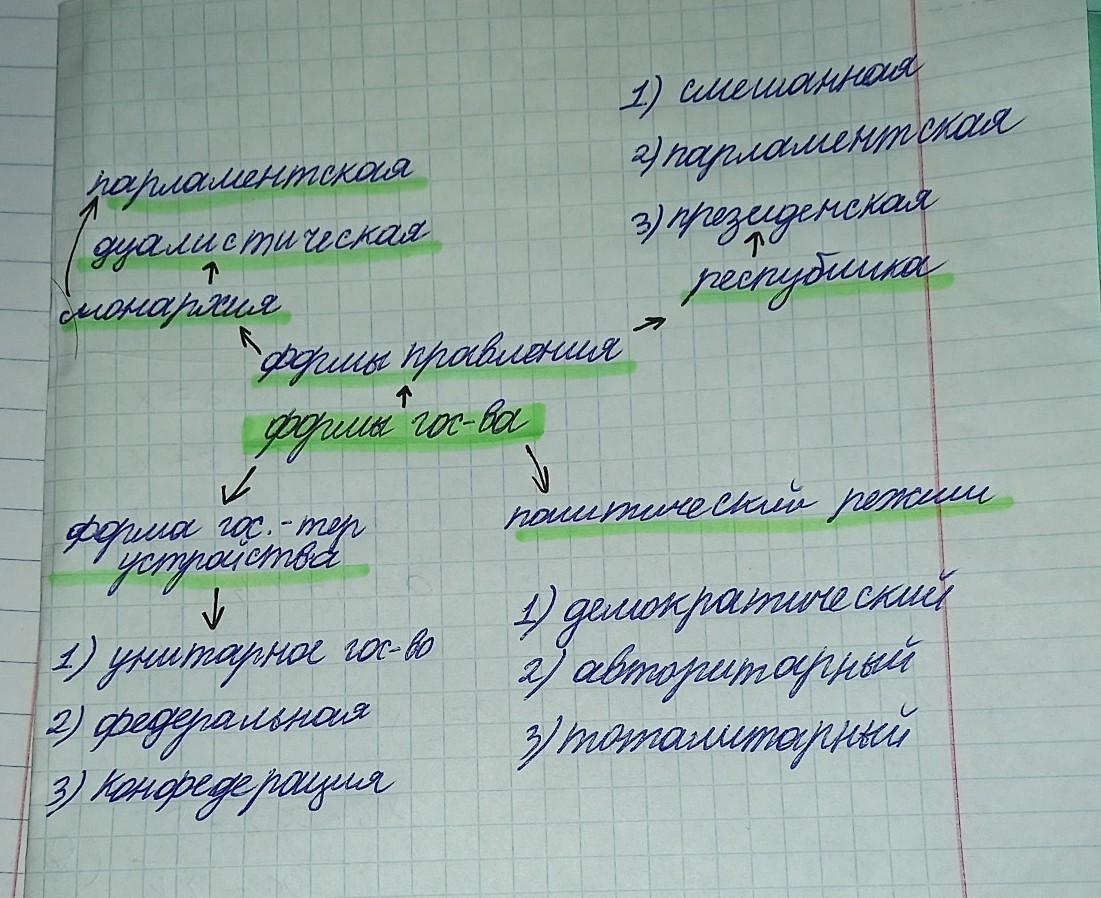 1) смешанная
2) парламентская
3) президенская
республика
парламентская
дуалистическая
монархия
формы правления
формы гос-ва
форма гос.-тер
устройства
1) унитарное гос-во
2) федеральная
3) конфедерация
политический режим
1) демократический
2) авторитарный
3) тоталитарный